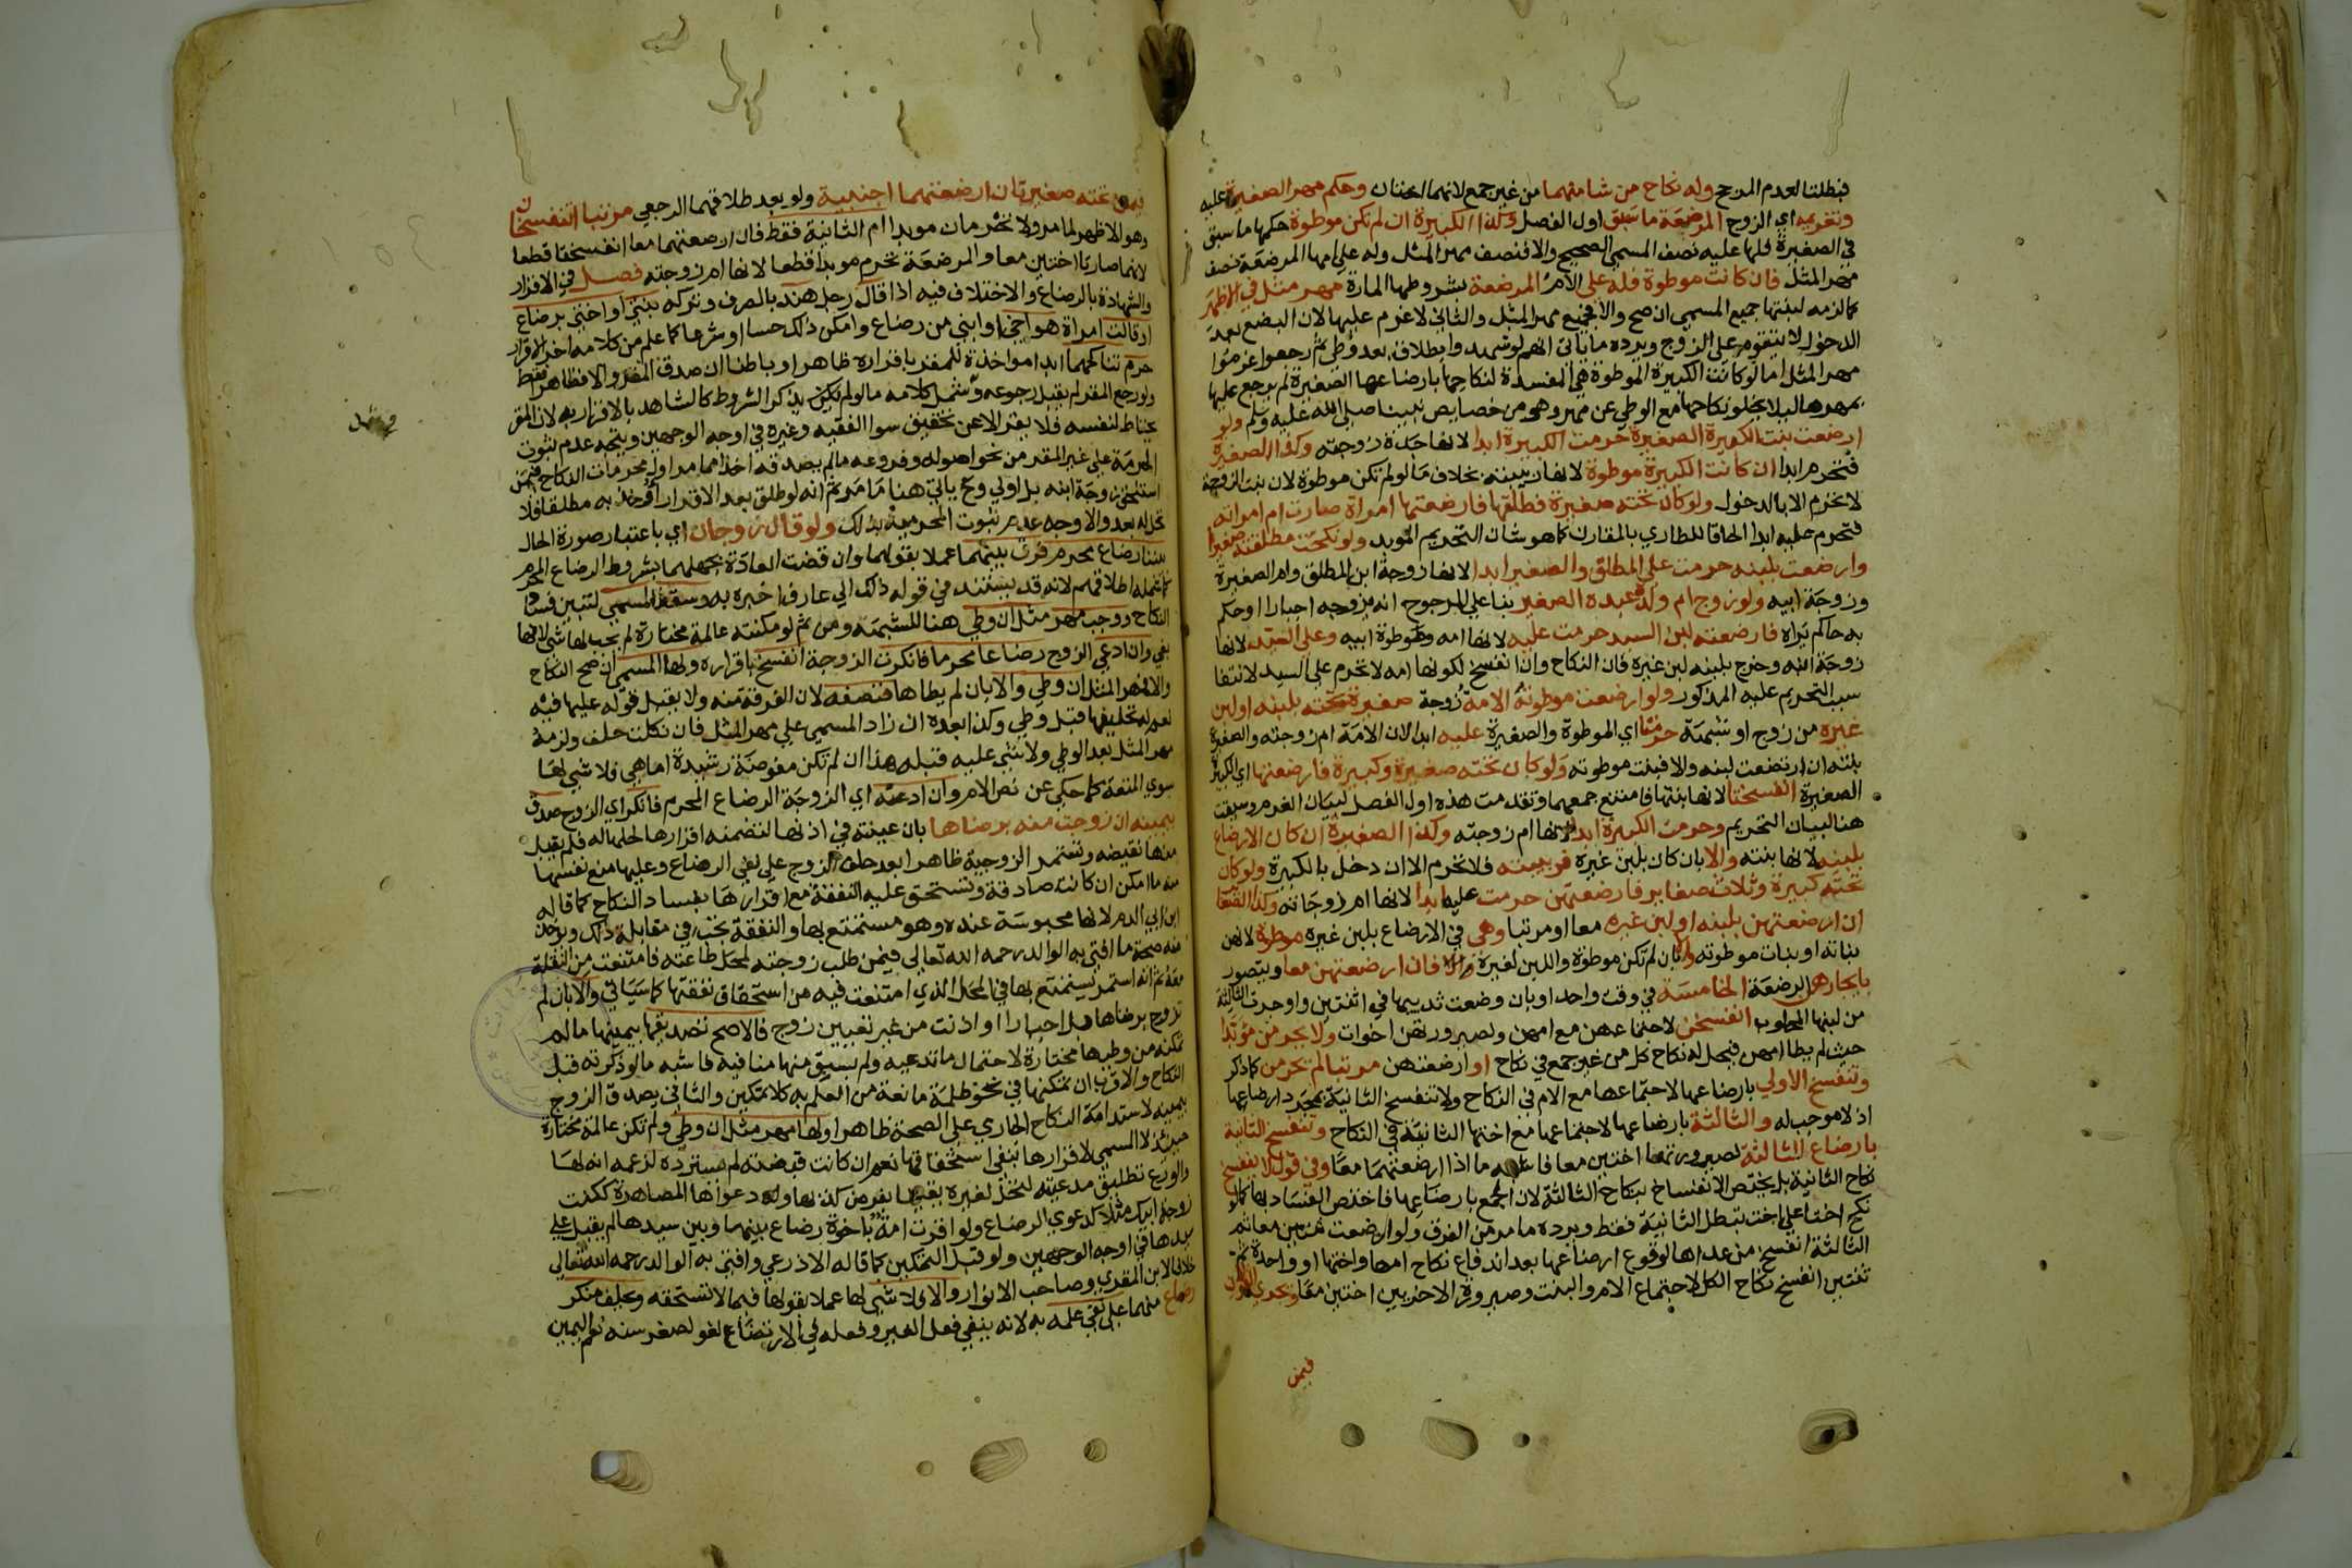 فبطلتا لعدم المرجح وله نكاح من شا منهما من غير جمع لانهما اختان وحكم مهر الصغيرة عليه
وتغريمه اي الزوج المرضعة ما سبق اول الفصل وكذا الكبيرة ان لم تكن موطوة حكمها ما سبق
في الصغيرة فلها عليه نصف المسمي الصحيح والا فنصف مهر المثل وله علي امها المرضعة نصف
مهر المثل فان كانت موطوة فله علي الام المرضعة بشروطها المارة مهر مثل في الاظهر
كما لزمه لبنتها جميع المسمي ان صح والا فجميع مهر المثل والثاني لا غرم عليها لان البضع بعد
الدخول لا يتقوم علي الزوج ويرده ما ياتي انهم لو شهدوا بطلاق بعد وطي ثم رجعوا غرموا
مهر المثل اما لو كانت الكبيرة الموطوة هي المفسدة لنكاحها بارضاعها الصغيرة لم يرجع عليها
بمهرها ليلا يخلو نكاحها مع الوطي عن مهر وهو من خصايص نبينا صلي الله عليه وسلم ولو
ارضعت بنت الكبيرة الصغيرة حرمت الكبيرة ابدا لانها جدة زوجته وكذا الصغيرة
فتحرم ابدا ان كانت الكبيرة موطوة لانها ربيبته بخلاف ما لو لم تكن موطوة لان بنت الزوجة
لا تحرم الا بالدخول ولو كان تحته صغيرة فطلقها فارضعتها امراة صارت ام امراته
فتحرم عليه ابدا الحاقا للطاري بالمقارن كما هو شان التحريم الموبد ولو نكحت مطلقته صغيرا
وارضعته بلبنه حرمت علي المطلق والصغير ابدا لانها زوجة ابن المطلق وام الصغيرة
وزوجة ابيه ولو زوج ام ولده عبده الصغير بنا علي المرجوح انه يزوجه اجبارا او حكم
به حاكم يراه فارضعته لبن السيد حرمت عليه لانها امه وموطوة ابيه وعلي السيد لانها
زوجة ابنه وخرج بلبنه لبن غيره فان النكاح وان انفسخ لكونها امه لا تحرم علي السيد لانتفا
سبب التحريم عليه المذكور ولو ارضعت موطوته الامة زوجة صغيرة تحته بلبنه او لبن
غيره من زوج او شبهة حرمتا اي الموطوة والصغيرة عليه ابدا لان الامة ام زوجته والصغيرة
بنته ان ارتضعت لبنه والا فبنت موطوته ولو كان تحته صغيرة وكبيرة فارضعتها اي الكبيرة
الصغيرة انفسختا لانها بنتها فامتنع جمعهما وتقدمت هذه اول الفصل لبيان الغرم وسيقت
هنا لبيان التحريم وحرمت الكبيرة ابدا لانها ام زوجته وكذا الصغيرة ان كان الارضاع
بلبنه لانها بنته والا بان كان بلبن غيره فربيبته فلا تحرم الا ان دخل بالكبيرة ولو كان
تحته كبيرة وثلاث صغاير فارضعتهن حرمت عليه ابدا لانها ام زوجاته وكذا الصغار
ان ارضعتهن بلبنه او لبن غيره معا او مرتبا وهي في الارضاع بلبن غيره موطوة لانهن
بناته او بنات موطوته والا بان لم تكن موطوة واللبن لغيره فان ارضعتهن معا ويتصور
بايجارهن الرضعة الخامسة في وقت واحد او بان وضعت ثدييها في اثنتين واوجرت الثالثة
من لبنها المحلوب انفسخن لاجتماعهن مع امهن ولصيرورتهن اخوات ولا يحرمن موبدا
حيث لم يطا امهن فيحل له نكاح كل من غير جمع في نكاح او ارضعتهن مرتبا لم تحرمن كما ذكر
وتنفسخ الاولي بارضاعها لاجتماعها مع الام في النكاح ولا تنفسخ الثانية بمجرد ارضاعها
اذ لا موجب له والثالثة بارضاعها لاجتماعها مع اختها الثانية في النكاح وتنفسخ الثانية
بارضاع الثالثة لصيرورتهما اختين معا فاشبه ما اذا ارضعتهما معا وفي قول لا ينفسخ
نكاح الثانية بل يختص الانفساخ بنكاح الثالثة لان الجمع بارضاعها فاختص الفساد بها كما لو
نكح اختا علي اخت تبطل الثانية فقط ويرده ما مر من الفرق ولو ارضعت ثنتين معا ثم
الثالثة انفسخ من عداها لوقوع ارضاعها بعد اندفاع نكاح امها واختها او واحدة ثم
ثنتين انفسخ نكاح الكل لاجتماع الام والبنت وصيرورة الاخريين اختين معا ويجري القولان
فيمن
فيمن تحته صغيرتان ارضعتهما اجنبية ولو بعد طلاقهما الرجعي مرتبا اتنفسخان
وهو الاظهر لما مر ولا تحرمان موبدا ام الثانية فقط فان ارضعتهما معا انفسختا قطعا
لانهما صارتا اختين معا والمرضعة تحرم موبدا قطعا لانها ام زوجته فصل في الاقرار
والشهادة بالرضاع والاختلاف فيه اذا قال رجل هند بالصرف وتركه بنتي او اختي برضاع
او قالت امراة هو اخي او ابني من رضاع وامكن ذلك حسا او شرعا كما علم من كلامه اخر الاقرار
حرم تناكحهما ابدا مواخذة للمقر باقراره ظاهرا وباطنا ان صدق المقر والا فظاهرا فقط
ولو رجع المقر لم يقبل رجوعه وشمل كلامه ما لو لم يذكر الشروط كالشاهد بالاقرار به لان المقر
يحتاط لنفسه فلا يقر الا عن تحقيق سوا الفقيه وغيره في اوجه الوجهين ويتجه عدم ثبوت
الحرمة علي غير المقر من نحو اصوله وفروعه ما لم يصدقه اخذا مما مر اول محرمات النكاح فيمن
استلحق زوجة ابنه بل اولي وح ياتي هنا ما مر ثم انه لو طلق بعد الاقرار اخذ به مطلقا فلا
تحل له بعد والاوجه عدم ثبوت المحرمية بذلك ولو قال زوجان اي باعتبار صورة الحال
بيننا رضاع محرم فرق بينهما عملا بقولهما وان قضت العادة بجهلهما بشروط الرضاع المحرم
كما شمله اطلاقهم لانه قد يستند في قوله ذلك الي عارف اخبره به وسقط المسمي لتبين فساد
النكاح ووجب مهر مثل ان وطي هنا للشبهة ومن ثم لو مكنته عالمة مختارة لم يجب لها شي لانها
بغي وان ادعي الزوج رضاعا محرما فانكرت الزوجة انفسخ باقراره ولها المسمي ان صح النكاح
والا فمهر المثل ان وطي والا بان لم يطاها فنصفه لان الفرقة منه ولا يقبل قوله عليها فيه
نعم له تحليفها قبل وطي وكذا بعده ان زاد المسمي علي مهر المثل فان نكلت حلف ولزمه
مهر المثل بعد الوطي ولا شي عليه قبله هذا ان لم تكن مفوضة رشيدة اما هي فلا شي لها
سوي المتعة كما حكي عن نص الام وان ادعته اي الزوجة الرضاع المحرم فانكر اي الزوج صدق
بيمينه ان زوجت منه برضاها بان عينته في اذنها لتضمنه اقرارها بحلها له فلم يقبل
منها نقيضه وتستمر الزوجية ظاهرا بعد حلف الزوج علي نفي الرضاع وعليها منع نفسها
منه ما امكن ان كانت صادقة وتستحق عليه النفقة مع اقرارها بفساد النكاح كما قاله
ابن ابي الدم لانها محبوسة عنده وهو مستمتع بها والنفقة تجب في مقابلة ذلك ويوخذ
منه صحة ما افتي به الوالد رحمه الله تعالي فيمن طلب زوجته لمحل طاعته فامتنعت من النقلة
معه ثم انه استمر يستمتع بها في المحل الذي امتنعت فيه من استحقاق نفقتها كما سياتي والا بان لم
تزوج برضاها بل اجبارا او اذنت من غير تعيين زوج فالاصح تصديقها بيمينها ما لم
تمكنه من وطيها مختارة لاحتمال ما تدعيه ولم يسبق منها منافيه فاشبه ما لو ذكرته قبل
النكاح والاقرب ان تمكينها في نحو ظلمة مانعة من العلم به كلا تمكين والثاني يصدق الزوج
بيمينه لاستدامة النكاح الجاري علي الصحة ظاهرا ولها مهر مثل ان وطي ولم تكن عالمة مختارة
حينئذ لا المسمي لاقرارها بنفي استحقاقها نعم ان كانت قبضته لم يسترده لزعمه انه لها
والورع تطليق مدعيته لتحل لغيره يقينا بفرض كذبها ودعواها المصاهرة ككنت
زوجة ابيك مثلا كدعوي الرضاع ولو اقرت امة باخوة رضاع بينهما وبين سيدها لم يقبل علي
سيدها في اوجه الوجهين ولو قبل التمكين كما قاله الاذرعي وافتي به الوالد رحمه الله تعالي
خلافا لابن المقري وصاحب الانوار والا فلا شي لها عملا بقولها فيما لا تستحقه ويحلف منكر
رضاع منهما علي نفي علمه به لانه ينفي فعل الغير وفعله في الارتضاع لغو لصغر سنه نعم اليمين